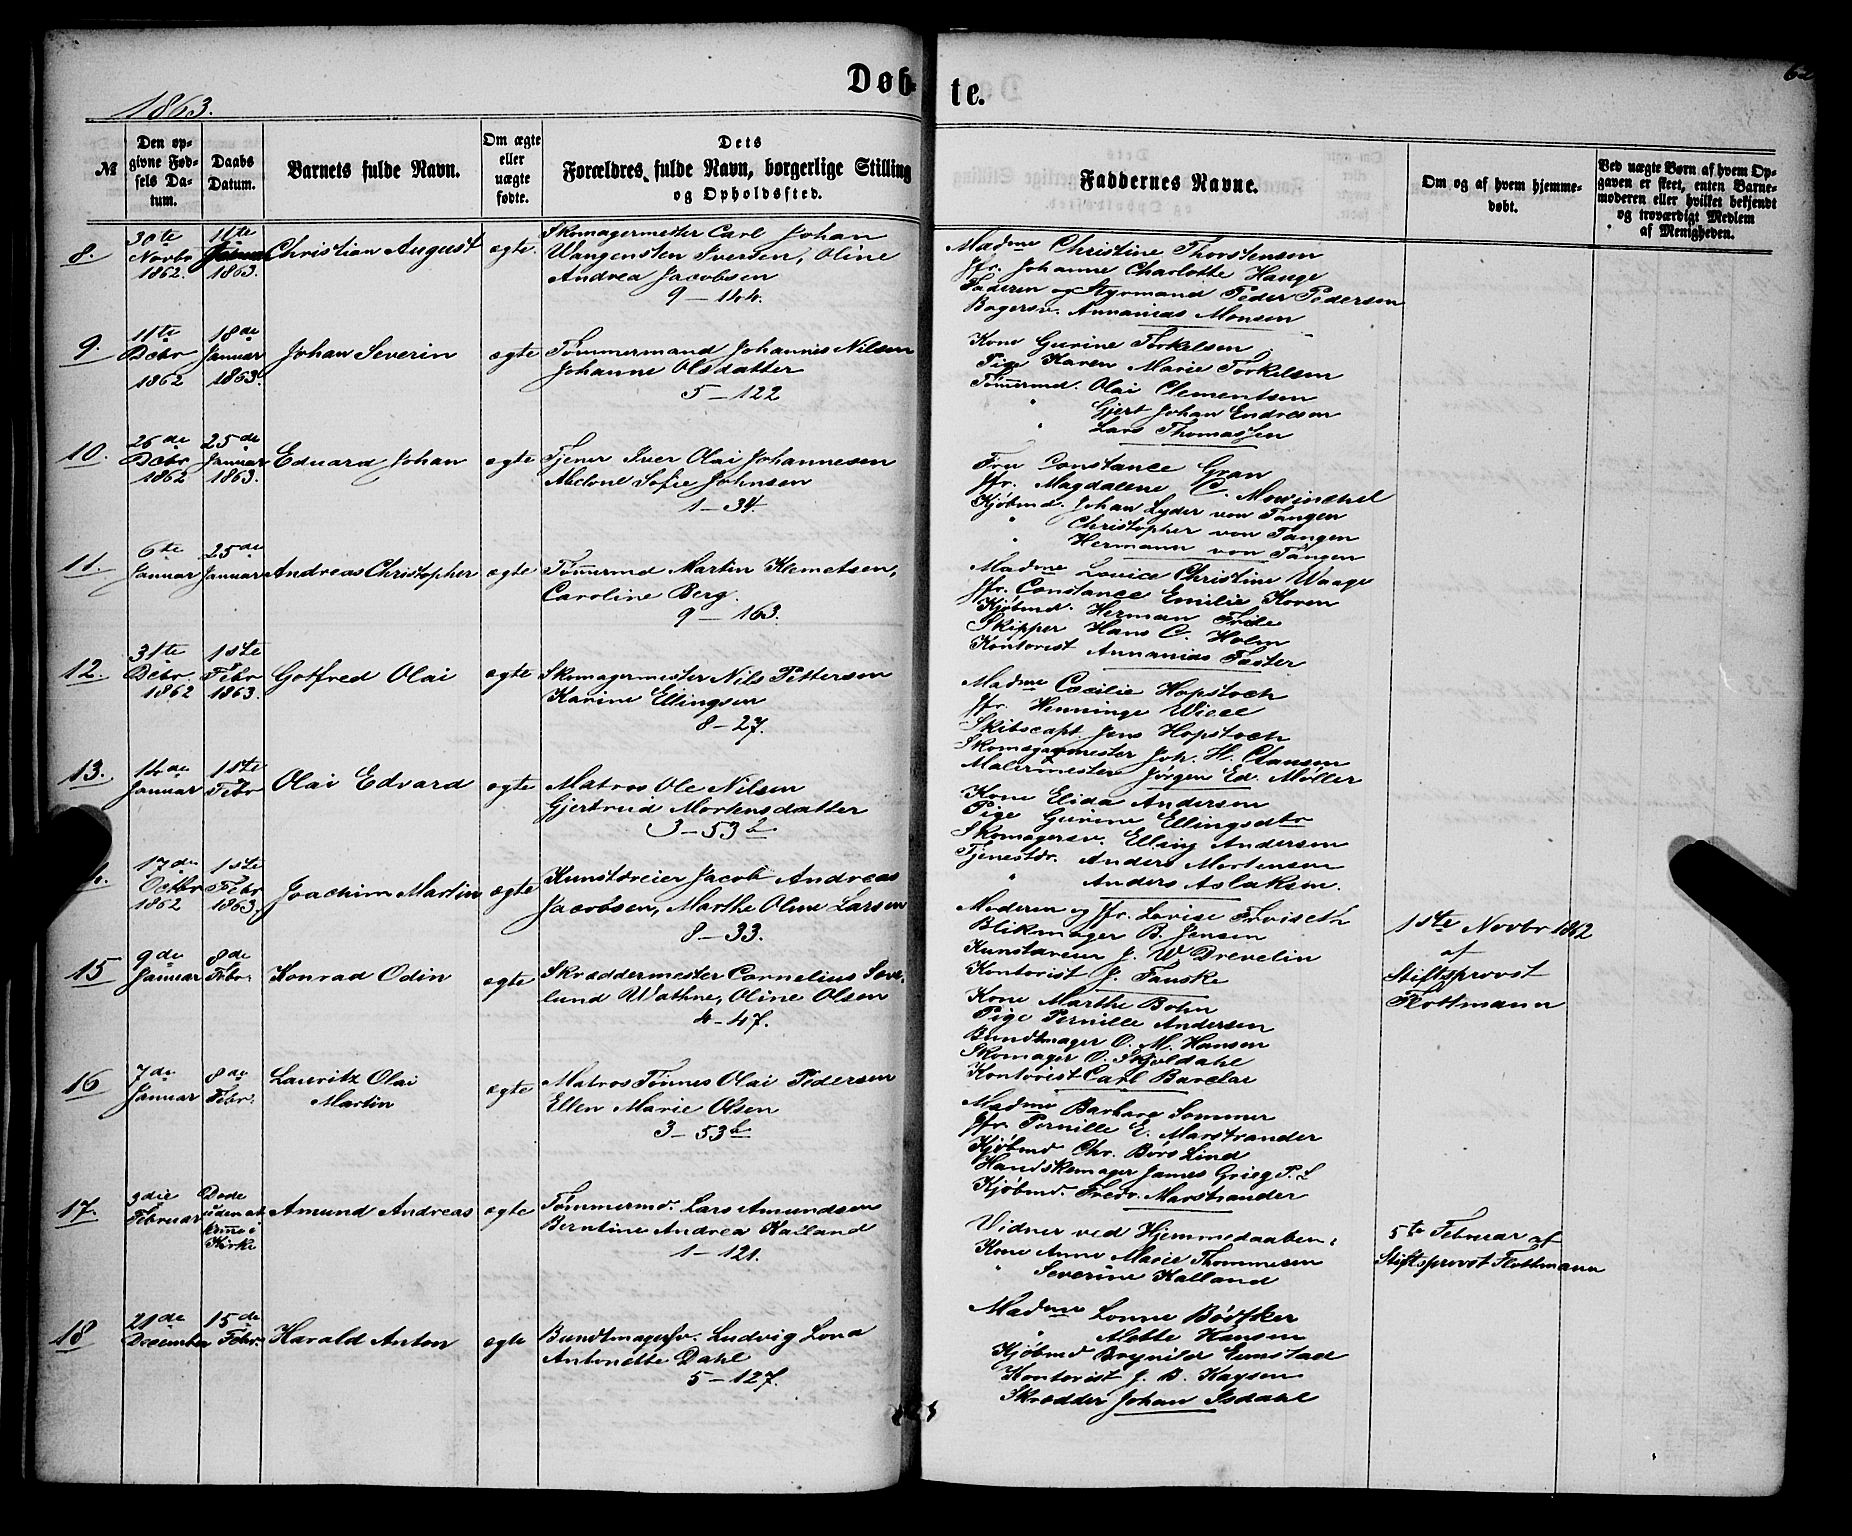 1863.
Døb-
te.
62
№
Den op-
givne Fød-
sels Da-
tum.
Daabs
Datum.
Barnets fulde Navn.
Om ægte
eller
uægte
fødte.
Dets
Forældres fulde Navn, borgerlige Stilling
og Opholdssted.
Faddernes Navne.
Om og af hvem hjemme-
døbt.
Ved uægte Børn af hvem Op-
gaven er skeet, enten Barne-
moderen eller hvilket bekjendt
og troværdigt Medlem
af Menigheden.
8.
30te
Novbr
1862.
11te
Januar
1863.
Christian August
ægte.
Skomagermester Carl Johan
Wangensten Iversen, Oline
Andrea Jacobsen
9 – 144.
Madme Christine Thorstensen
Jfr. Johanne Charlotte Hauge
Faderen og Styrmand Peder Pedersen
Bagersv. Annanias Monsen
9.
11te
Decbr
1862
18de
Januar
1863.
Johan Severin
ægte
Tømmermand Johannes Nilsen
Johanne Olsdatter
5 – 122
Kone Gurine Torkelsen
Pige Karen Marie Torkelsen
Tømermd. Olai Clementsen
" Gjert Johan Endresen
" Lars Thomassen
10.
26de
Decbr
1862
25de
Januar
1863.
Eduard Johan
ægte
Tjener Iver Olai Johannesen
Abelone Sofie Johnsen
1 – 34.
Fru Constance Gran
Jfr. Magdalene C. Mowinchel
Kjøbmd. Johan Lyder von Tangen
" Christopher von Tangen
Hermann von Tangen
11.
6te
Januar
25de
Januar
Andreas Christopher
ægte
Tømermd Martin Klemetsen,
Caroline Berg.
9 – 163.
Madme Lovice Christine Waage
Jfr. Constance Emilie Koren
Kjøbmd. Herman Friele
Skipper Hans C. Holm
Kontorist Annanias Faster
12.
31te
Decbr
1862
1ste
Febr
1863.
Gotfred Olai
ægte
Skomagermester Nils Pettersen
Karine Ellingsen
8 – 27.
Madme Cæcilie Hopstock
Jfr. Henninge Wiese
Skibscapt. Jens Hopstock
Skomagermester Joh. H. Clausen
Malermester Jørgen Ed. Møller
13.
14de
Januar
1ste
Febr
Olai Edvard
ægte
Matros Ole Nilsen
Gjertrud Mortensdatter
3 – 53 b
Kone Elida Andersen
Pige Gurine Ellingsdtr
Skomagersv. Elling Andersen
Tjenestdr. Anders Mortensen
" Anders Aslaksen.
17de
Octbr
1862
1ste
Febr
1863.
Joachim Martin
ægte
Kunstdreier Jacob Andreas
Jacobsen, Marthe Oline Larsen
8 – 33.
Moderen og Jfr. Lovise Troiseth
Blikmager B. Jensen
Kunstdreier J. W Drevelin
Kontorist J. Fauske
1ste Novbr 1862
af
Stiftsprovst
Flottmann
15
9de
Januar
8de
Febr.
Konrad Odin
ægte
Skræddermester Cornelius Sve-
lund Wathne, Oline Olsen
4 – 47.
Kone Marthe Bohn
Pige Pernille Andersen
Bundtmager O. M. Hansen
Skomager O. Skjoldahl
Kontorist Carl Barclar
16
7de
Januar
8de
Febr.
Lauritz Olai
Martin
ægte
Matros Tønnes Olai Pedersen
Ellen Marie Olsen
3 – 53 b
Madme Barbara Sommer
Jfr. Pernille E. Marstrander
Kjøbmd Chr. Børs Lind
Handskemager James Grieg P. L
Kjøbmd. Fredr. Marstrander
17.
3die
Februar
Døde
uden at
komme i
Kirke
Amund Andreas
ægte
Tømmermd. Lars Amundsen
Berntine Andrea Kalland
1 – 121.
Vidner ved Hjemmedaaben:
Kone Anne Marie Thommesen
" Severine Kalland
5te Februar af
Stiftsprovst Flottmann
18
21de
December
15de
Febr.
Harald Anton
ægte
Bundtmagersv. Ludvig Lona
Antonette Dahl
5 – 127.
Madme Lonne Bødtker
" Alette Hansen
Kjøbmd Brynild Eimstad
Kontorist J. B. Kaysen
Skrædder Johan Isdahl